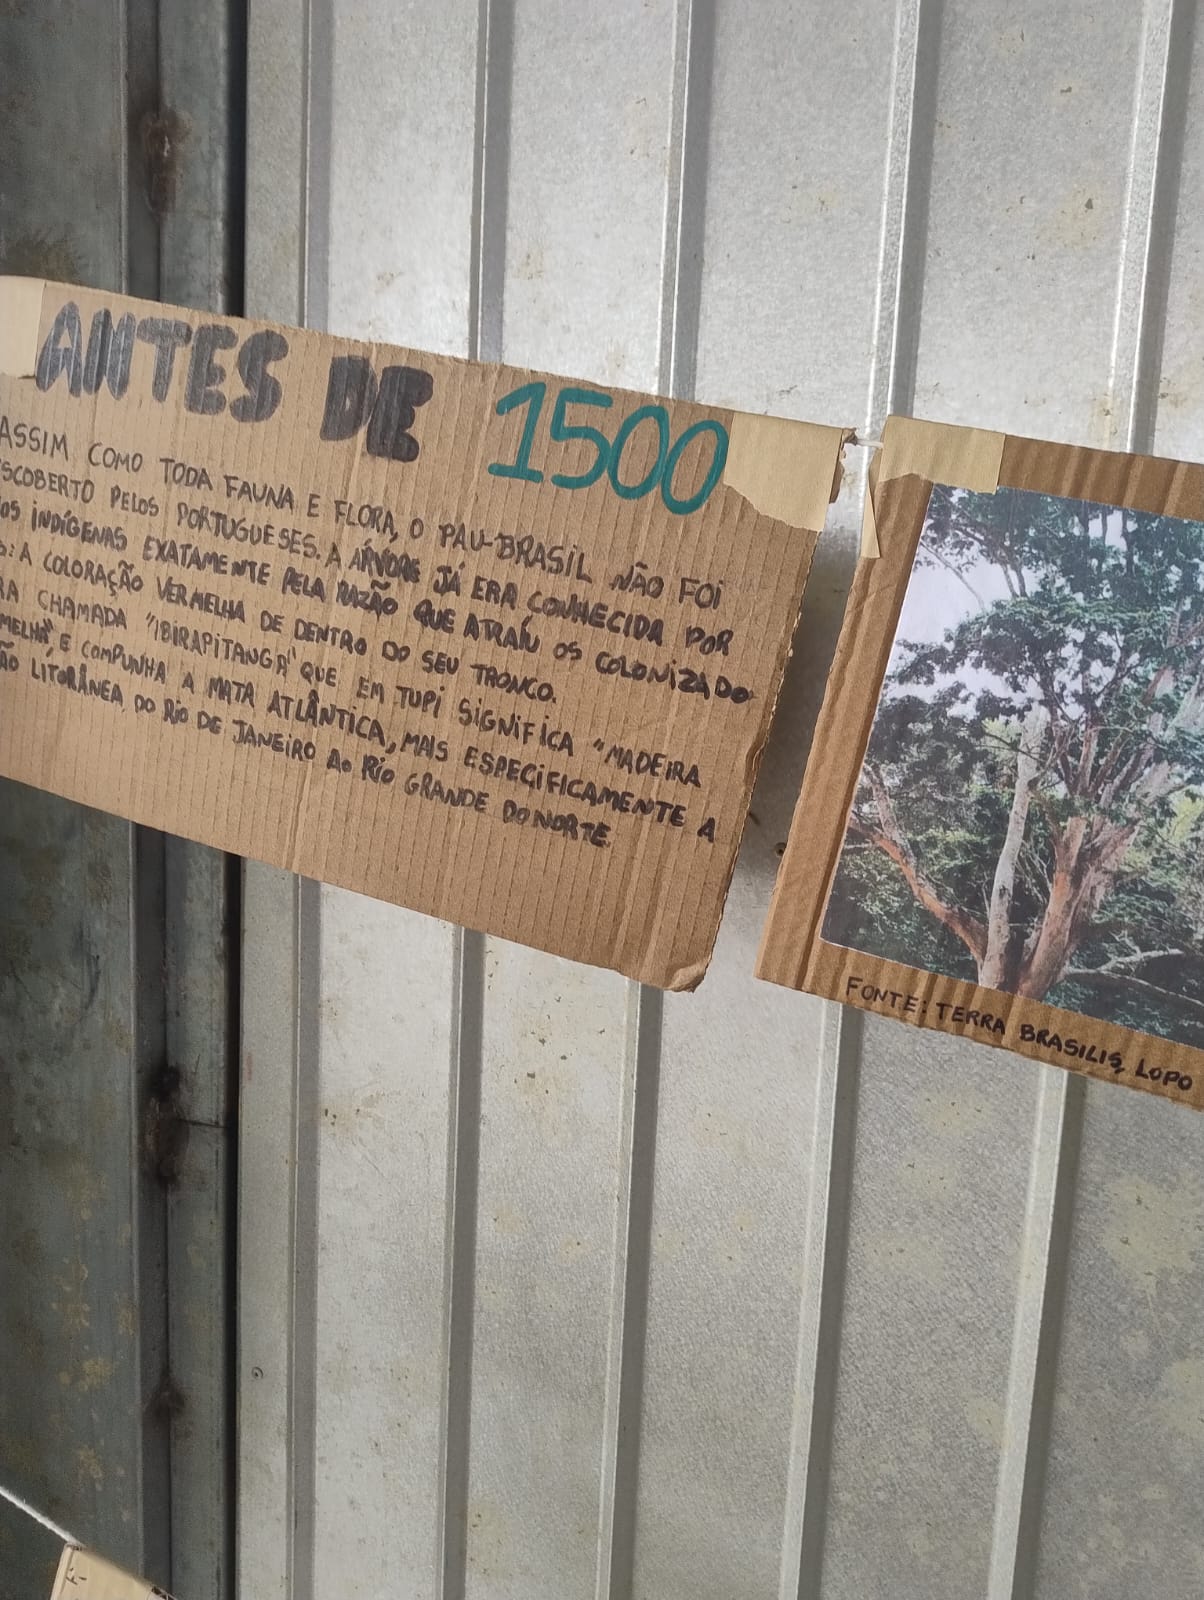 ANTES DE 1500
ASSIM COMO TODA FAUNA E FLORA, O PAU-BRASIL NÃO FOI
SCOBERTO PELOS PORTUGUESES. A ÁRVORE JÁ ERA CONHECIDA POR
OS INDÍGENAS EXATAMENTE PELA RAZÃO QUE ATRAÍU OS COLONIZADO
S: A COLORAÇÃO VERMELHA DE DENTRO DO SEU TRONCO.
RA CHAMADA "IBIRAPITANGA" QUE EM TUPI SIGNIFICA "MADEIRA
MELHA" E COMPUNHA A MATA ATLÂNTICA, MAIS ESPECIFICAMENTE A
ÃO LITORÂNEA, DO RIO DE JANEIRO AO RIO GRANDE DO NORTE.
FONTE: TERRA BRASILIS, LOPO